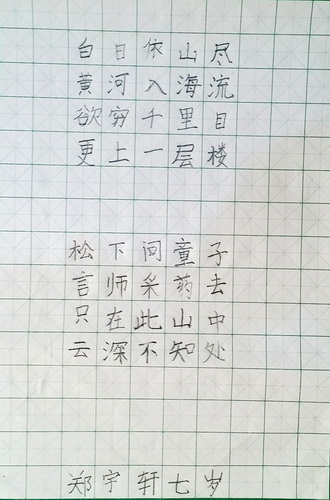 白日依山尽
黄河入海流
欲穷千里目
更上一层楼
松下问童子
言师采药去
只在此山中
云深不知处
郑宇轩七岁